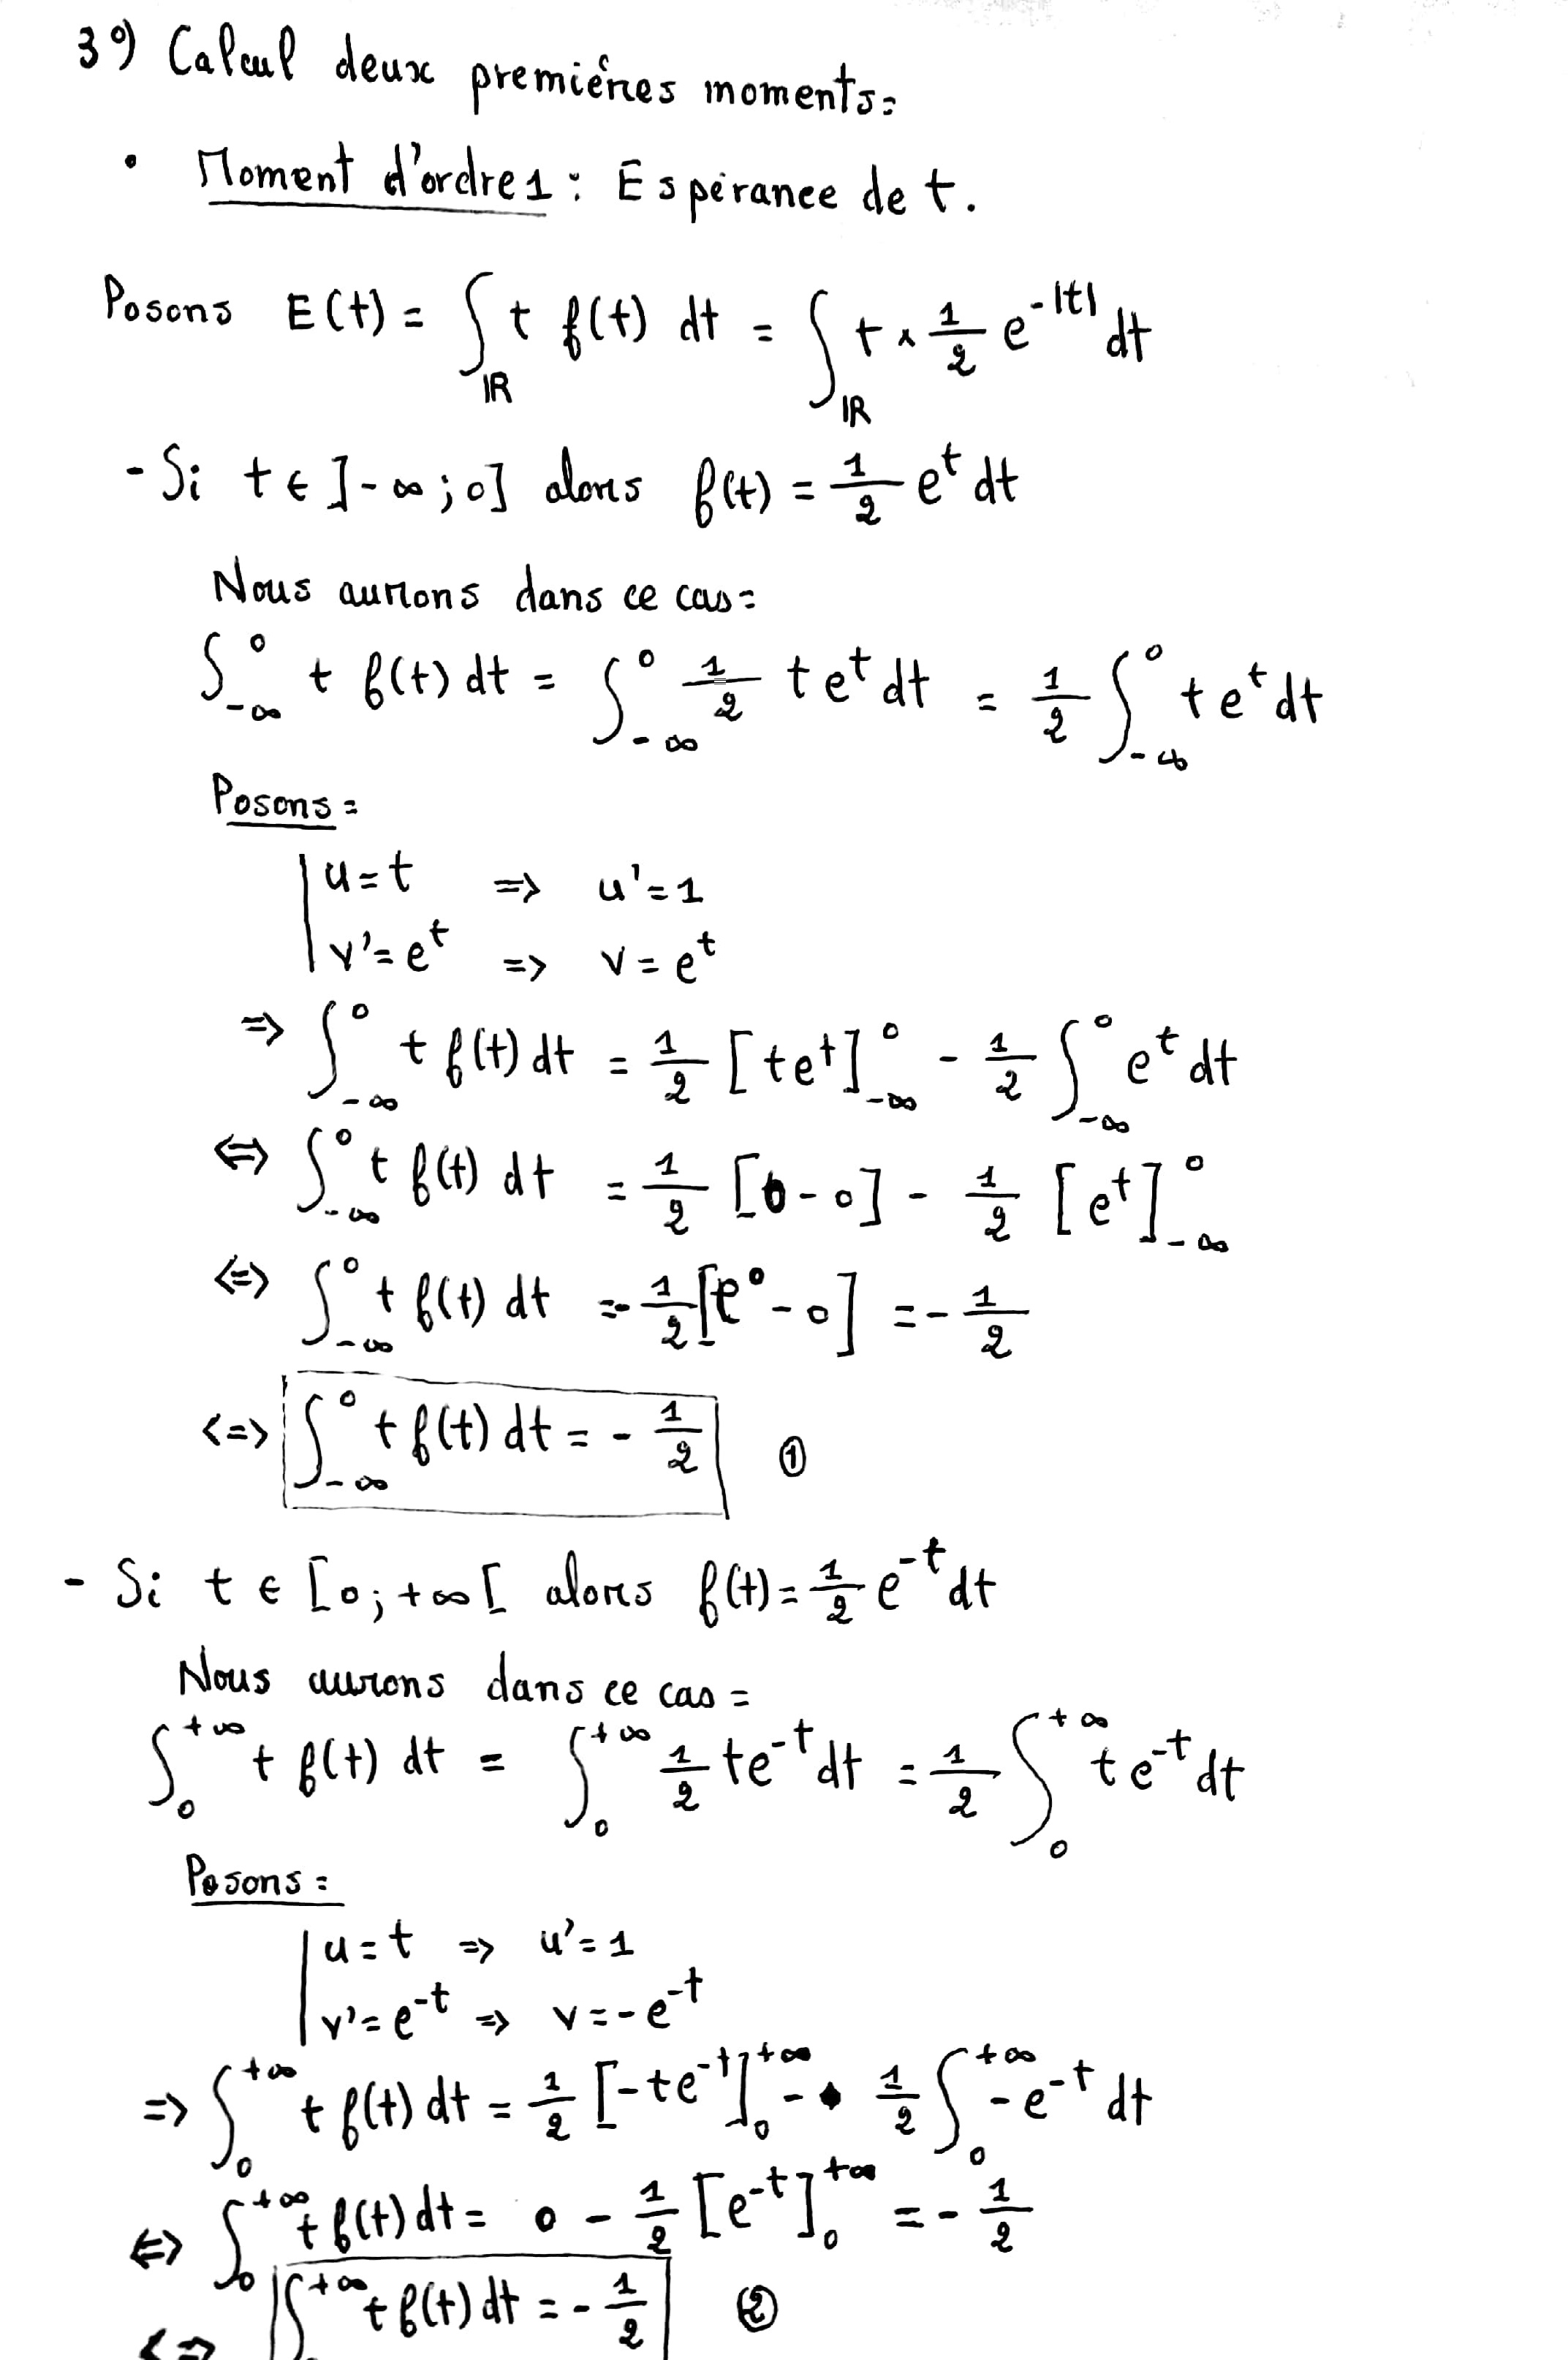 3°) Calcul deux premières moments:
• Moment d'ordre 1 : Espérance de t.
Posons E(t) = ∫_ℝ t f(t) dt = ∫_ℝ t × 1/2 e^{-|t|} dt
- Si t ∈ ]-∞ ; 0] alors f(t) = 1/2 e^t dt
Nous aurons dans ce cas =
∫_{-∞}^0 t f(t) dt = ∫_{-∞}^0 1/2 t e^t dt = 1/2 ∫_{-∞}^0 t e^t dt
Posons =
| u = t => u' = 1
| v' = e^t => v = e^t
=> ∫_{-∞}^0 t f(t) dt = 1/2 [t e^t]_{-∞}^0 - 1/2 ∫_{-∞}^0 e^t dt
<=> ∫_{-∞}^0 t f(t) dt = 1/2 [0 - 0] - 1/2 [e^t]_{-∞}^0
<=> ∫_{-∞}^0 t f(t) dt = - 1/2 [e^0 - 0] = - 1/2
<=> ∫_{-∞}^0 t f(t) dt = - 1/2 ①
- Si t ∈ [0 ; +∞[ alors f(t) = 1/2 e^{-t} dt
Nous aurons dans ce cas =
∫_0^{+∞} t f(t) dt = ∫_0^{+∞} 1/2 t e^{-t} dt = 1/2 ∫_0^{+∞} t e^{-t} dt
Posons =
| u = t => u' = 1
| v' = e^{-t} => v = - e^{-t}
=> ∫_0^{+∞} t f(t) dt = 1/2 [-t e^{-t}]_0^{+∞} - 1/2 ∫_0^{+∞} - e^{-t} dt
<=> ∫_0^{+∞} t f(t) dt = 0 - 1/2 [e^{-t}]_0^{+∞} = - 1/2
<=> ∫^{+∞} t f(t) dt = - 1/2 ②